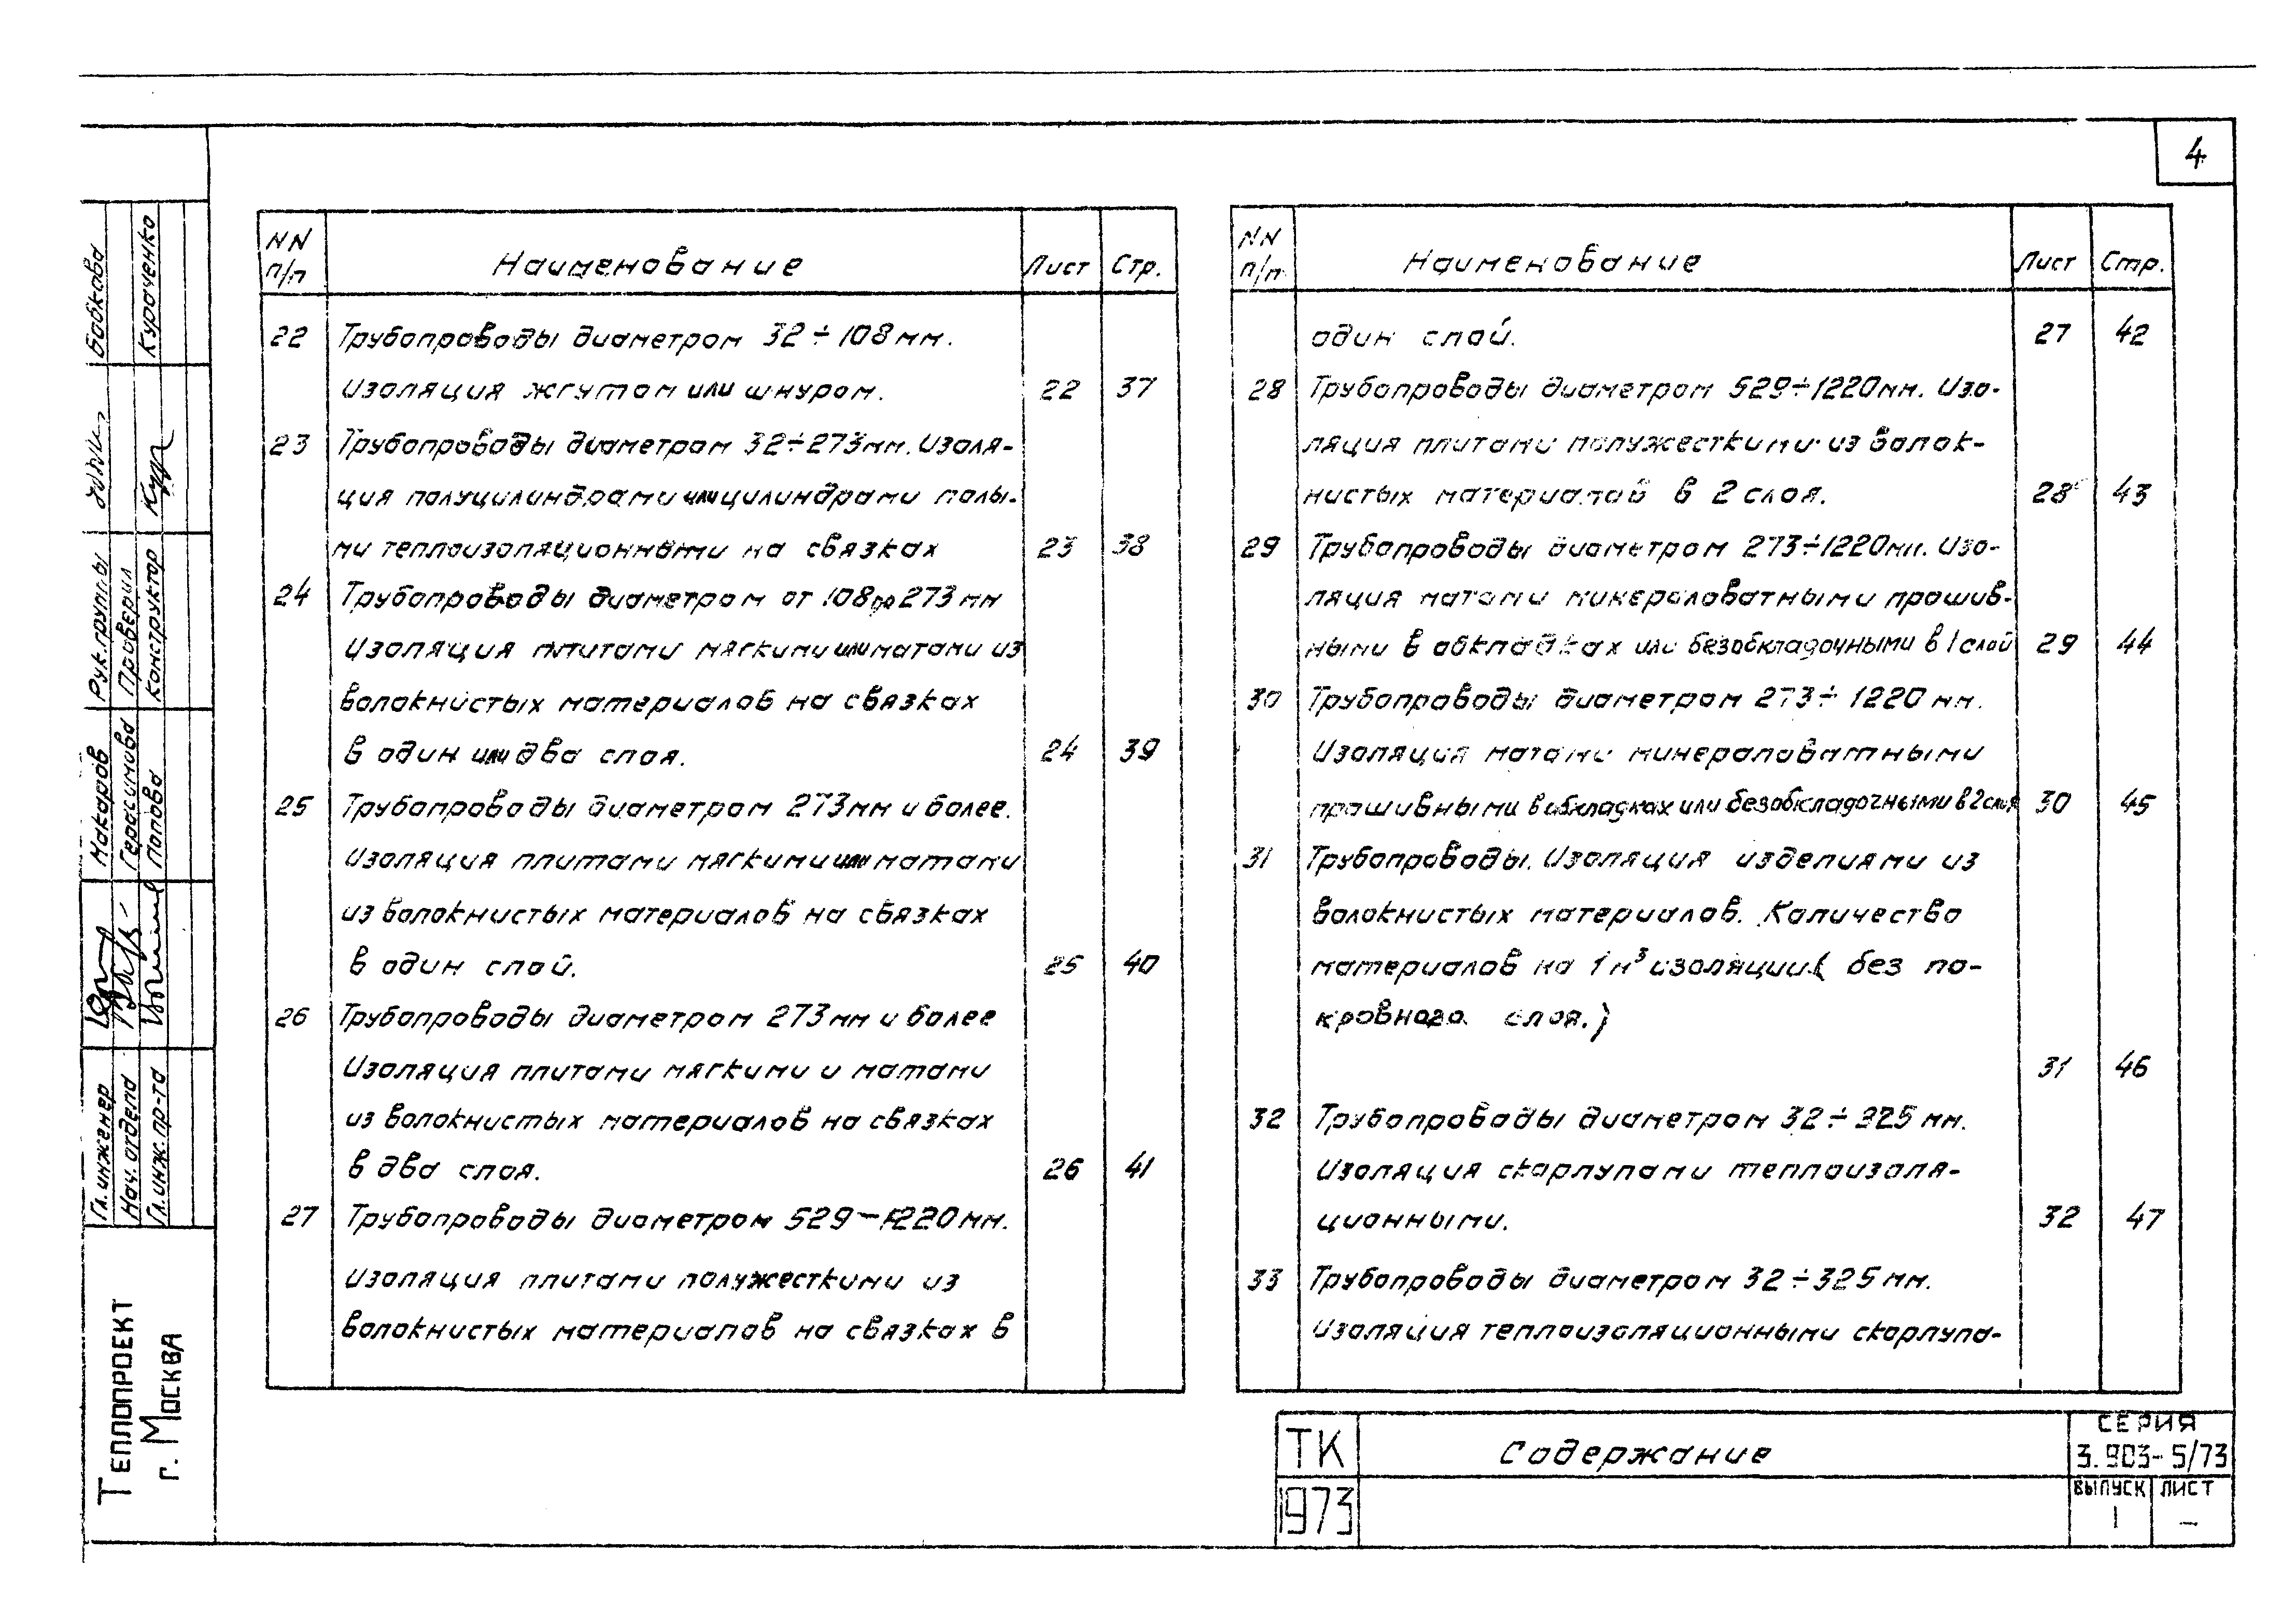 4
NN п/п Наименование Лист Стр.
22 Трубопроводы диаметром 32÷108 мм.
Изоляция жгутом или шнуром. 22 37
23 Трубопроводы диаметром 32÷273мм. Изоля-
ция полуцилиндрами или цилиндрами полы-
ми теплоизоляционными на связках 23 38
24 Трубопроводы диаметром от 108 до 273 мм
Изоляция плитами мягкими или матами из
волокнистых материалов на связках
в один или два слоя. 24 39
25 Трубопроводы диаметром 273мм и более.
Изоляция плитами мягкими или матами
из волокнистых материалов на связках
в один слой. 25 40
26 Трубопроводы диаметром 273мм и более
Изоляция плитами мягкими и матами
из волокнистых материалов на связках
в два слоя. 26 41
27 Трубопроводы диаметром 529—1220 мм.
Изоляция плитами полужесткими из
волокнистых материалов на связках в
NN п/п Наименование Лист Стр.
один слой. 27 42
28 Трубопроводы диаметром 529÷1220мм. Изо-
ляция плитами полужесткими из волок-
нистых материалов в 2 слоя. 28 43
29 Трубопроводы диаметром 273÷1220мм. Изо-
ляция матами минераловатными прошив-
ными в обкладках или безобкладочными в 1 слой 29 44
30 Трубопроводы диаметром 273÷1220 мм.
Изоляция матами минераловатными
прошивными в обкладках или безобкладочными в 2 слоя 30 45
31 Трубопроводы. Изоляция изделиями из
волокнистых материалов. Количество
материалов на 1 м³ изоляции ( без по-
кровного слоя.)
31 46
32 Трубопроводы диаметром 32÷325 мм.
Изоляция скорлупами теплоизоля-
ционными. 32 47
33 Трубопроводы диаметром 32÷325 мм.
Изоляция теплоизоляционными скорлупа-
ТК
1973
Содержание
СЕРИЯ
3.903-5/73
ВЫПУСК ЛИСТ
1 —
Теплопроект
г. Москва
Гл. инженер Макаров Рук. группы Бобкова
Нач. отдела Герасимова Проверил
Гл. инж. пр-та Попова Конструктор Кураченко